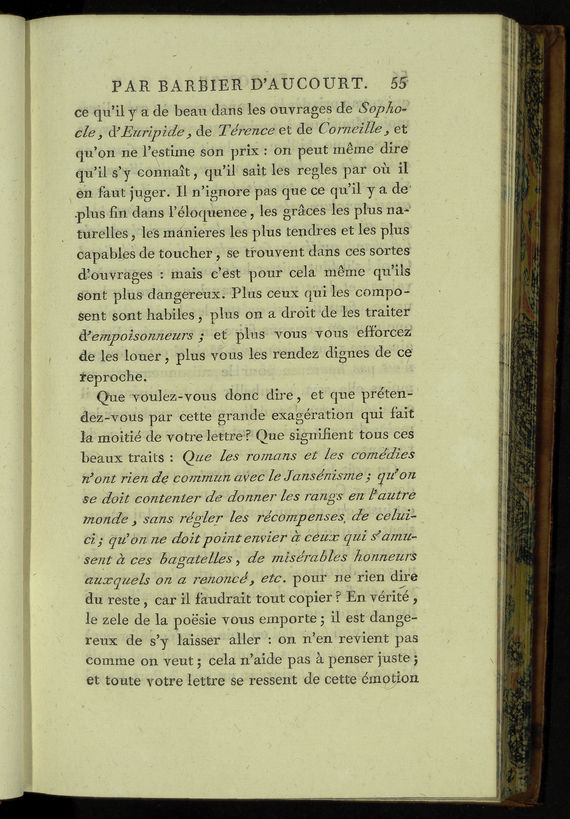 PAR BARBIER D'AUCOURT. 55
ce qu'il y a de beau dans les ouvrages de Sopho-
cle, d'Euripide, de Térence et de Corneille, et
qu'on ne l'estime son prix : on peut même dire
qu'il s'y connaît, qu'il sait les regles par où il
en faut juger. Il n'ignore pas que ce qu'il y a de
plus fin dans l'éloquence, les grâces les plus na-
turelles, les manieres les plus tendres et les plus
capables de toucher, se trouvent dans ces sortes
d'ouvrages : mais c'est pour cela même qu'ils
sont plus dangereux. Plus ceux qui les compo-
sent sont habiles, plus on a droit de les traiter
d'empoisonneurs ; et plus vous vous efforcez
de les louer, plus vous les rendez dignes de ce
reproche.
Que voulez-vous donc dire, et que préten-
dez-vous par cette grande exagération qui fait
la moitié de votre lettre ? Que signifient tous ces
beaux traits : Que les romans et les comédies
n'ont rien de commun avec le Jansénisme ; qu'on
se doit contenter de donner les rangs en l'autre
monde, sans régler les récompenses de celui-
ci ; qu'on ne doit point envier à ceux qui s'amu-
sent à ces bagatelles, de misérables honneurs
auxquels on a renoncé, etc. pour ne rien dire
du reste, car il faudrait tout copier ? En vérité,
le zele de la poësie vous emporte ; il est dange-
reux de s'y laisser aller : on n'en revient pas
comme on veut ; cela n'aide pas à penser juste ;
et toute votre lettre se ressent de cette émotion